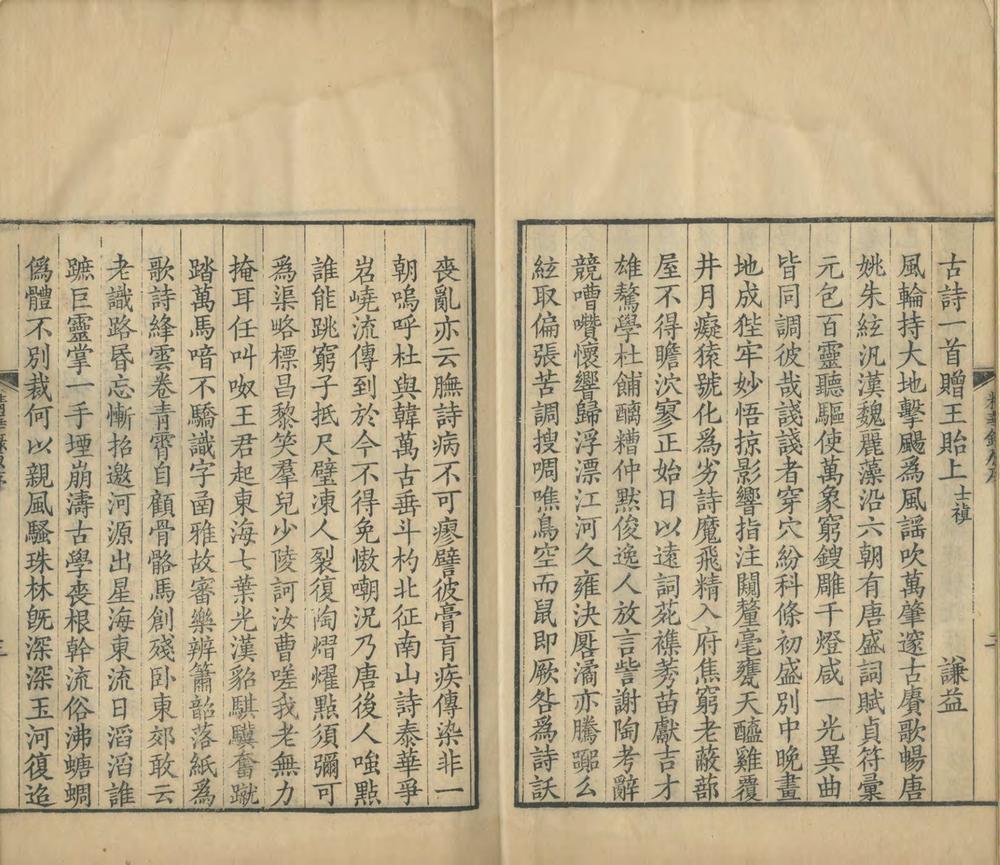 古詩一首贈王貽上士禛 謙益
風輪持大地擊颺為風謡吹萬肇邃古賡歌暢唐
姚朱絃汎漢魏麗藻沿六朝有唐盛詞賦貞符彙
元包百靈聽驅使萬象窮鎪雕千燈咸一光異曲
皆同調彼哉諓諓者穿穴紛科條初盛別中晚畫
地成狴牢妙悟掠影響指注闚釐毫甕天醯雞覆
井月癡猿號化為劣詩魔飛精入府焦窮老蔽蔀
屋不得瞻泬寥正始日以遠詞苑襍莠苗獻吉才
雄鷔學杜餔醨糟仲默俊逸人放言訾謝陶考辭
競嘈囋懷響歸浮漂江河久壅決屠潏亦騰嚻么
絃取偏張苦調搜啁噍鳥空而鼠即厥咎為詩訞
喪亂亦云膴詩病不可瘳譬彼膏肓疾傳染非一
朝嗚呼杜與韓萬古垂斗杓北征南山詩泰華爭
岧嶢流傳到於今不得免憿嘲況乃唐後人嗤點
誰能跳窮子抵尺璧凍人裂復陶熠燿點須彌可
為渠略標昌黎笑羣兒少陵訶汝曹嗟我老無力
掩耳任叫呶王君起東海七葉光漢貂騏驥奮蹴
踏萬馬喑不驕識字函雅故審樂辨簫韶落紙為
歌詩絳雲卷青霄自顧骨骼馬創殘卧東郊敢云
老識路昬忘慚招邀河源出星海東流日滔滔誰
蹠巨靈掌一手堙崩濤古學喪根幹流俗沸螗蜩
僞體不別裁何以親風騷珠林旣深深玉河復迢